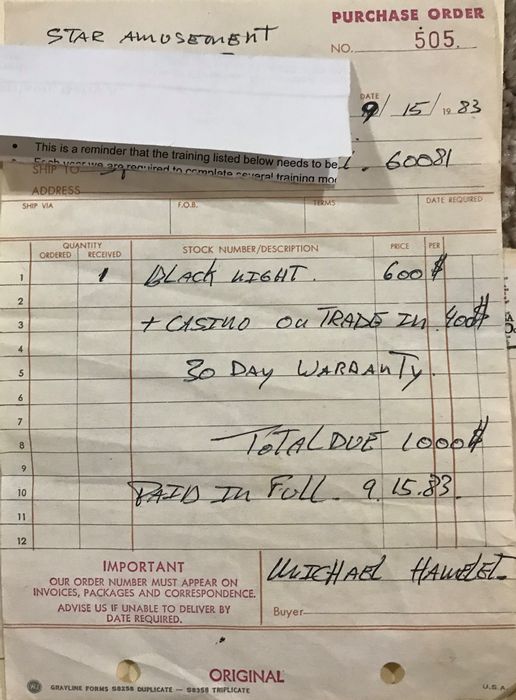 PURCHASE ORDER
STAR AMUSEMENT
NO. 505.
DATE
9/15/1983
This is a reminder that the training listed below needs to be
Each year we are required to complete several training mo
l. 60081
SHIP TO
ADDRESS
SHIP VIA F.O.B. TERMS DATE REQUIRED
QUANTITY
ORDERED RECEIVED STOCK NUMBER/DESCRIPTION PRICE PER
1 1 BLACK KIGHT. 600$
2
3 + CASINO ON TRADE IN 400$
4
5 30 DAY WARRANTY.
6
7
8 TOTAL DUE 1000$
9
10 PAID IN FULL - 9.15.83
11
12
IMPORTANT
OUR ORDER NUMBER MUST APPEAR ON
INVOICES, PACKAGES AND CORRESPONDENCE.
ADVISE US IF UNABLE TO DELIVER BY
DATE REQUIRED.
MICHAEL
Buyer
ORIGINAL
GRAYLINE FORMS S8258 DUPLICATE — S8358 TRIPLICATE
U.S.A.